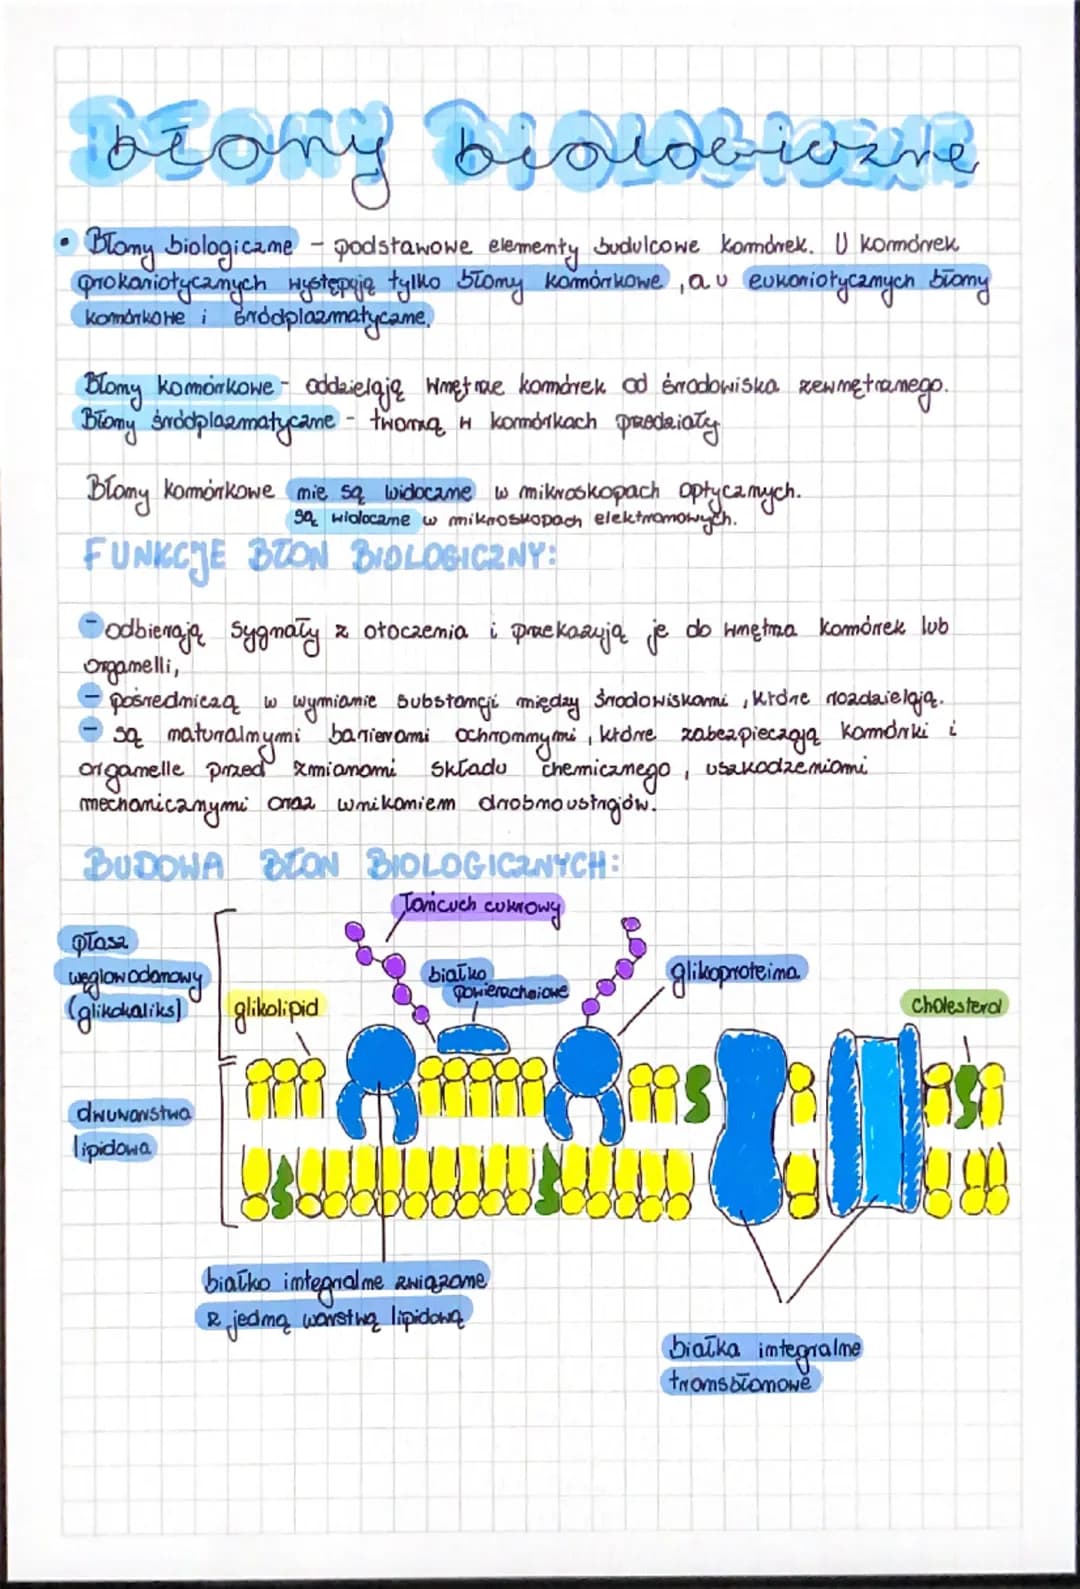 błony biologiczne
• Błony biologiczne - podstawowe elementy budulcowe komórek. U komórek
prokariotycznych występują tylko błony komórkowe, a u eukariotycznych błony
komórkowe i śródplazmatyczne.
Błony komórkowe - oddzielają wnętrze komórek od środowiska zewnętrznego.
Błony śródplazmatyczne - tworzą w komórkach przedziały
Błony komórkowe nie są widoczne w mikroskopach optycznych.
są widoczne w mikroskopach elektronowych.
FUNKCJE BŁON BIOLOGICZNY:
- odbierają sygnały z otoczenia i przekazują je do wnętrza komórek lub
organelli,
- pośredniczą w wymianie substancji między środowiskami, które rozdzielają.
- są naturalnymi barierami ochronnymi, które zabezpieczają komórki i
organelle przed zmianami składu chemicznego, uszkodzeniami
mechanicznymi oraz wnikaniem drobnoustrojów.
BUDOWA BŁON BIOLOGICZNYCH:
łańcuch cukrowy
płaszcz
węglowodanowy
(glikokaliks)
glikolipid
białko
powierzchniowe
glikoproteina
cholesterol
dwuwarstwa
lipidowa
białko integralne związane
z jedną warstwą lipidową
białka integralne
transbłonowe